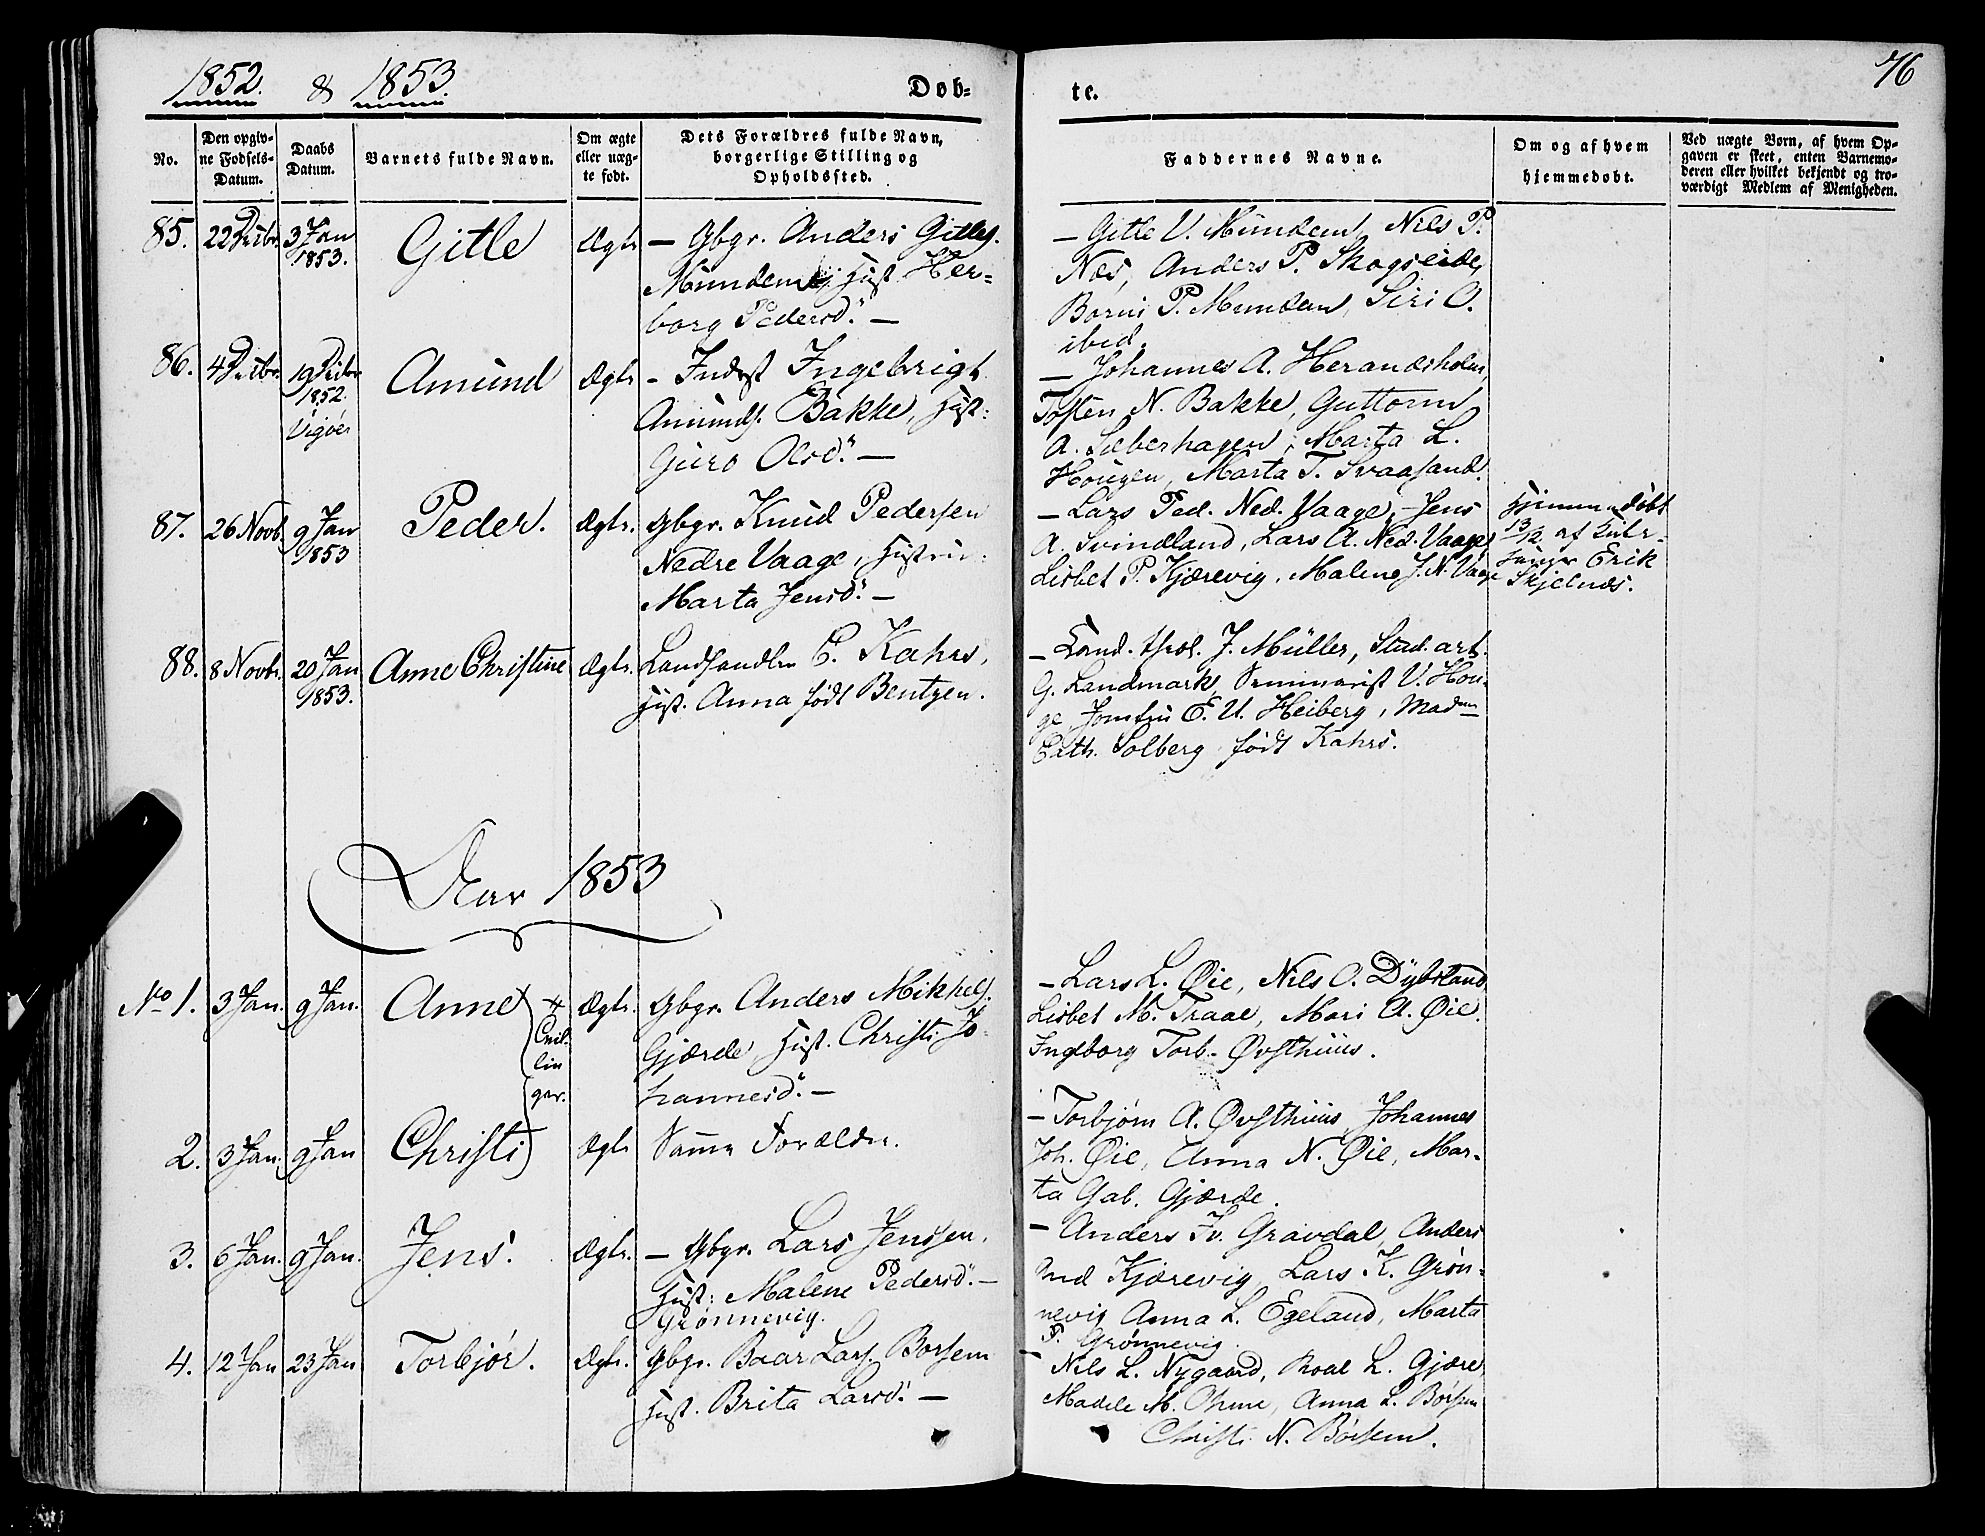 1852. & 1853.
Døb-
te.
76
No.
Den opgiv-
ne Fødsels-
Datum.
Daabs
Datum.
Barnets fulde Navn.
Om ægte
eller uæg-
te født.
Dets Forældres fulde Navn,
borgerlige Stilling og
Opholdssted.
Faddernes Navne.
Om og af hvem
hjemmedøbt.
Ved uægte Børn, af hvem Op-
gaven er skeet, enten Barnemo-
deren eller hvilket bekjendt og tro-
værdigt Medlem af Menigheden.
85. 22 Decbr. 3 Jan 1853. Gitle Ægte
– Gbgr. Anders Gitles.
Mundem, Hust Her-
borg Pedersd. –
– Gitle V. Mundem, Nils P.
Næs, Anders P. Skogseide,
Børni P. Mundem, Siri O.
ibid.
86. 4 Decbr. 19 Decbr 1852. Vigøer Amund Ægte
– Inderst Ingebrigt
Amunds. Bakke, Hust:
Guro Olsd. –
– Johannes A. Herandsholm,
Tosten N. Bakke, Guttorm
A. Sæberhagen, Marta L.
Hougen, Marta T. Svaasand.
87. 26 Novb. 9 Jan 1853 Peder. Ægte.
Gbgr. Knud Pedersen
Nedre Vaage, Hustru:
Marta Jensd. –
– Lars Ped. Ned. Vaage, Jens
A. Svindland, Lars A. Ned. Vaage,
Lisbet P. Kjærevig, Malene J. N. Vaage
Hjemmedøbt
13/12 af
Erik
Skjelnæs.
88. 8 Novbr. 20 Jan 1853. Anne Christine Ægte.
Landhandler C. Kahrs,
Hust. Anna født Bentzen.
– Cand. theol. J. Müller, Stud. art.
G. Landmark, Seminarist V. Hou-
ge, Jomfru E. U. Heiberg, Madm
Cath. Solberg født Kahrs.
Aar 1853
No 1. 3 Jan. 9 Jan. Anne Ægte.
Gbgr. Anders Mikkels.
Gjærde, Hust. Christi Jo-
hannesd. –
– Lars L. Øie, Nils O. Dybsland,
Lisbet M. Traae, Mari A. Øie.
Ingborg Torb. Øvsthuus.
+
Tvil-
lin
ger.
2. 3 Jan. 9 Jan Christi Ægte
Samme Forældre.
– Torbjørn A. Øvsthuus, Johannes
Joh. Øie, Anna N. Øie, Mar-
ta Gab. Gjærde.
3. 6 Jan. 9 Jan. Jens. Ægte.
– Gbgr. Lars Jensen,
Hust: Malene Pedersd. –
Grønnevig.
– Anders Iv. Gravdal, Anders
Kjærevig, Lars K. Grøn-
nevig Anna L. Egeland, Marta
P. Grønnevig.
4. 12 Jan 23 Jan Torbjør. Ægte.
Gbgr. Baar Lars. Børsem
Hust. Brita Larsd. –
– Nils L. Nygaard, Roal L. Gjære,
Madele M. Ohme, Anna L. Børsem
Christi N. Børsem.